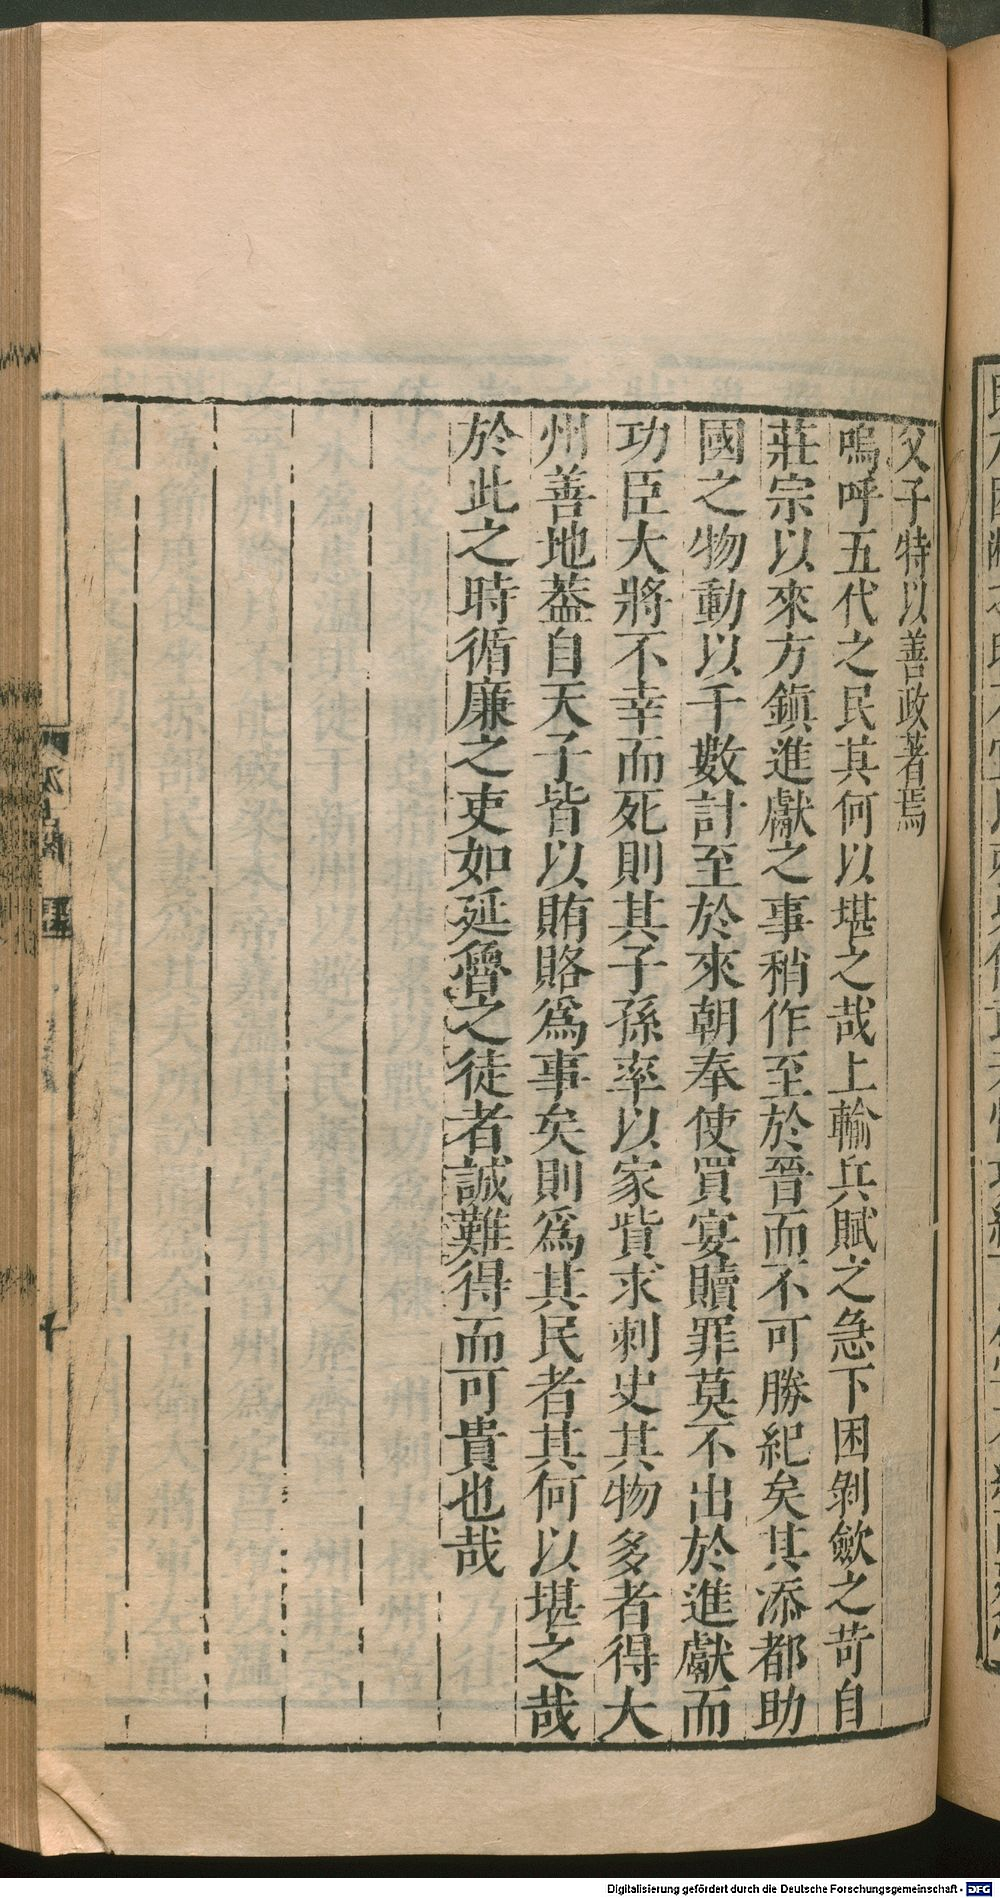 父子特以善政著焉
嗚呼五代之民其何以堪之哉上輸兵賦之急下困剝斂之苛自
莊宗以來方鎮進獻之事稍作至於晉而不可勝紀矣其添都助
國之物動以千數計至於來朝奉使買宴贖罪莫不出於進獻而
功臣大將不幸而死則其子孫率以家貲求刺史其物多者得大
州善地葢自天子皆以賄賂爲事矣則爲其民者其何以堪之哉
於此之時循廉之吏如延魯之徒者誠難得而可貴也哉
十
Digitalisierung gefördert durch die Deutsche Forschungsgemeinschaft - DFG